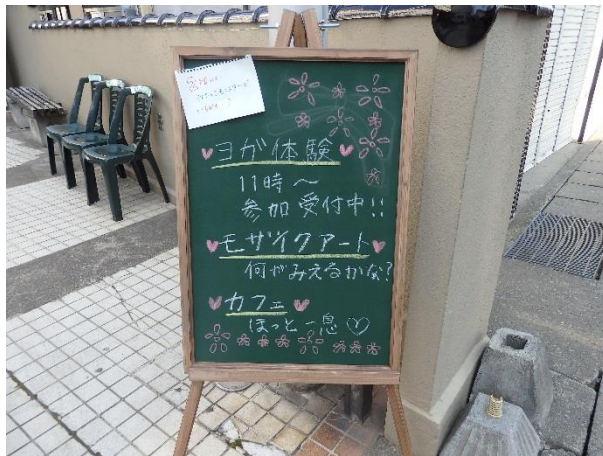 ヨガ体験
11時～
参加受付中!!
モザイクアート
何がみえるかな?
カフェ
ほっと一息